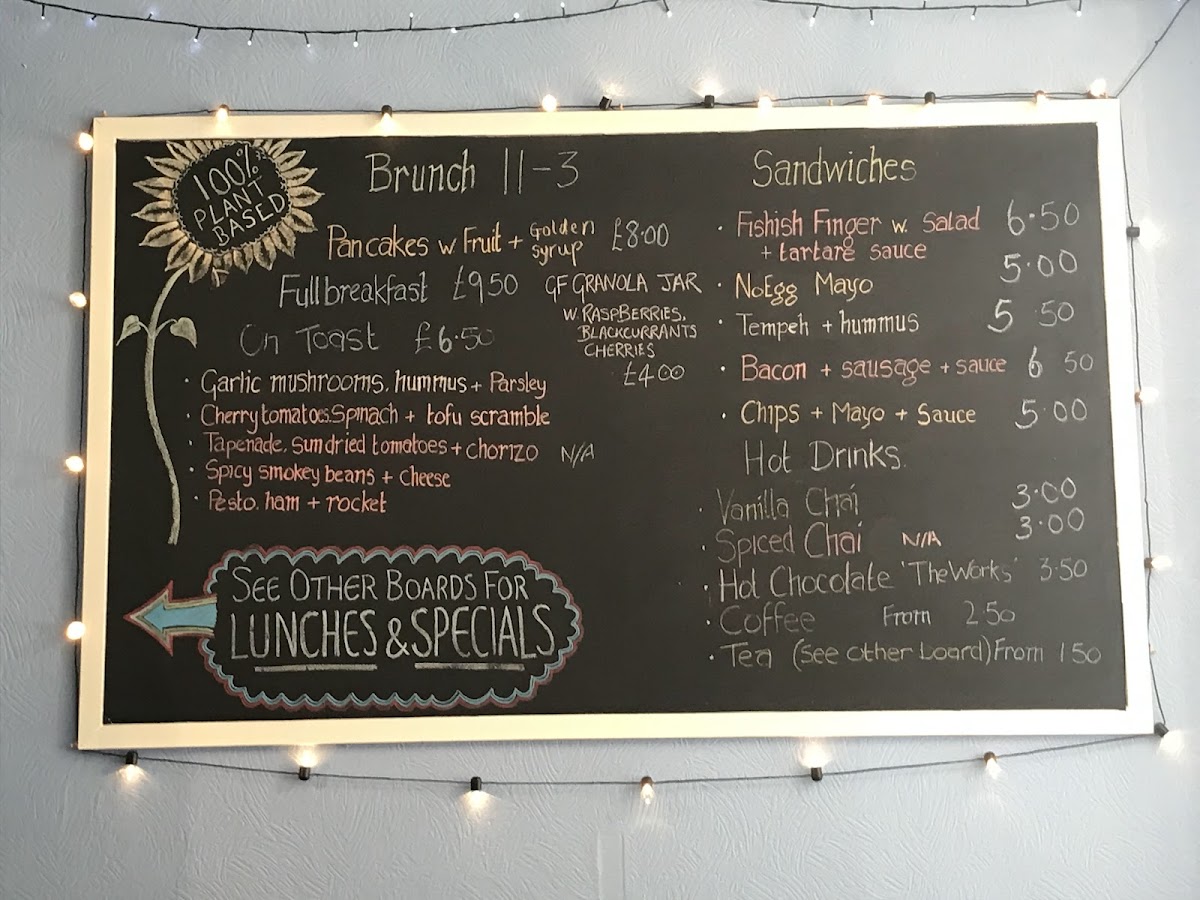 100%
PLANT
BASED
Brunch 11-3
Pancakes w Fruit + Golden syrup £8.00
Full breakfast £9.50
GF GRANOLA JAR
W. RASPBERRIES,
BLACKCURRANTS
CHERRIES
£4.00
On Toast £6.50
· Garlic mushrooms, hummus + Parsley
· Cherry tomatoes, Spinach + tofu scramble
· Tapenade, sundried tomatoes + chorizo N/A
· Spicy smokey beans + Cheese
· Pesto, ham + rocket
SEE OTHER BOARDS FOR
LUNCHES & SPECIALS
Sandwiches
· Fishish Finger w. Salad 6.50
+ tartare sauce
· NoEgg Mayo 5.00
· Tempeh + hummus 5.50
· Bacon + sausage + sauce 6.50
· Chips + Mayo + Sauce 5.00
Hot Drinks
· Vanilla Chai 3.00
· Spiced Chai N/A 3.00
· Hot Chocolate 'The Works' 3.50
· Coffee From 2.50
· Tea (see other board) From 1.50